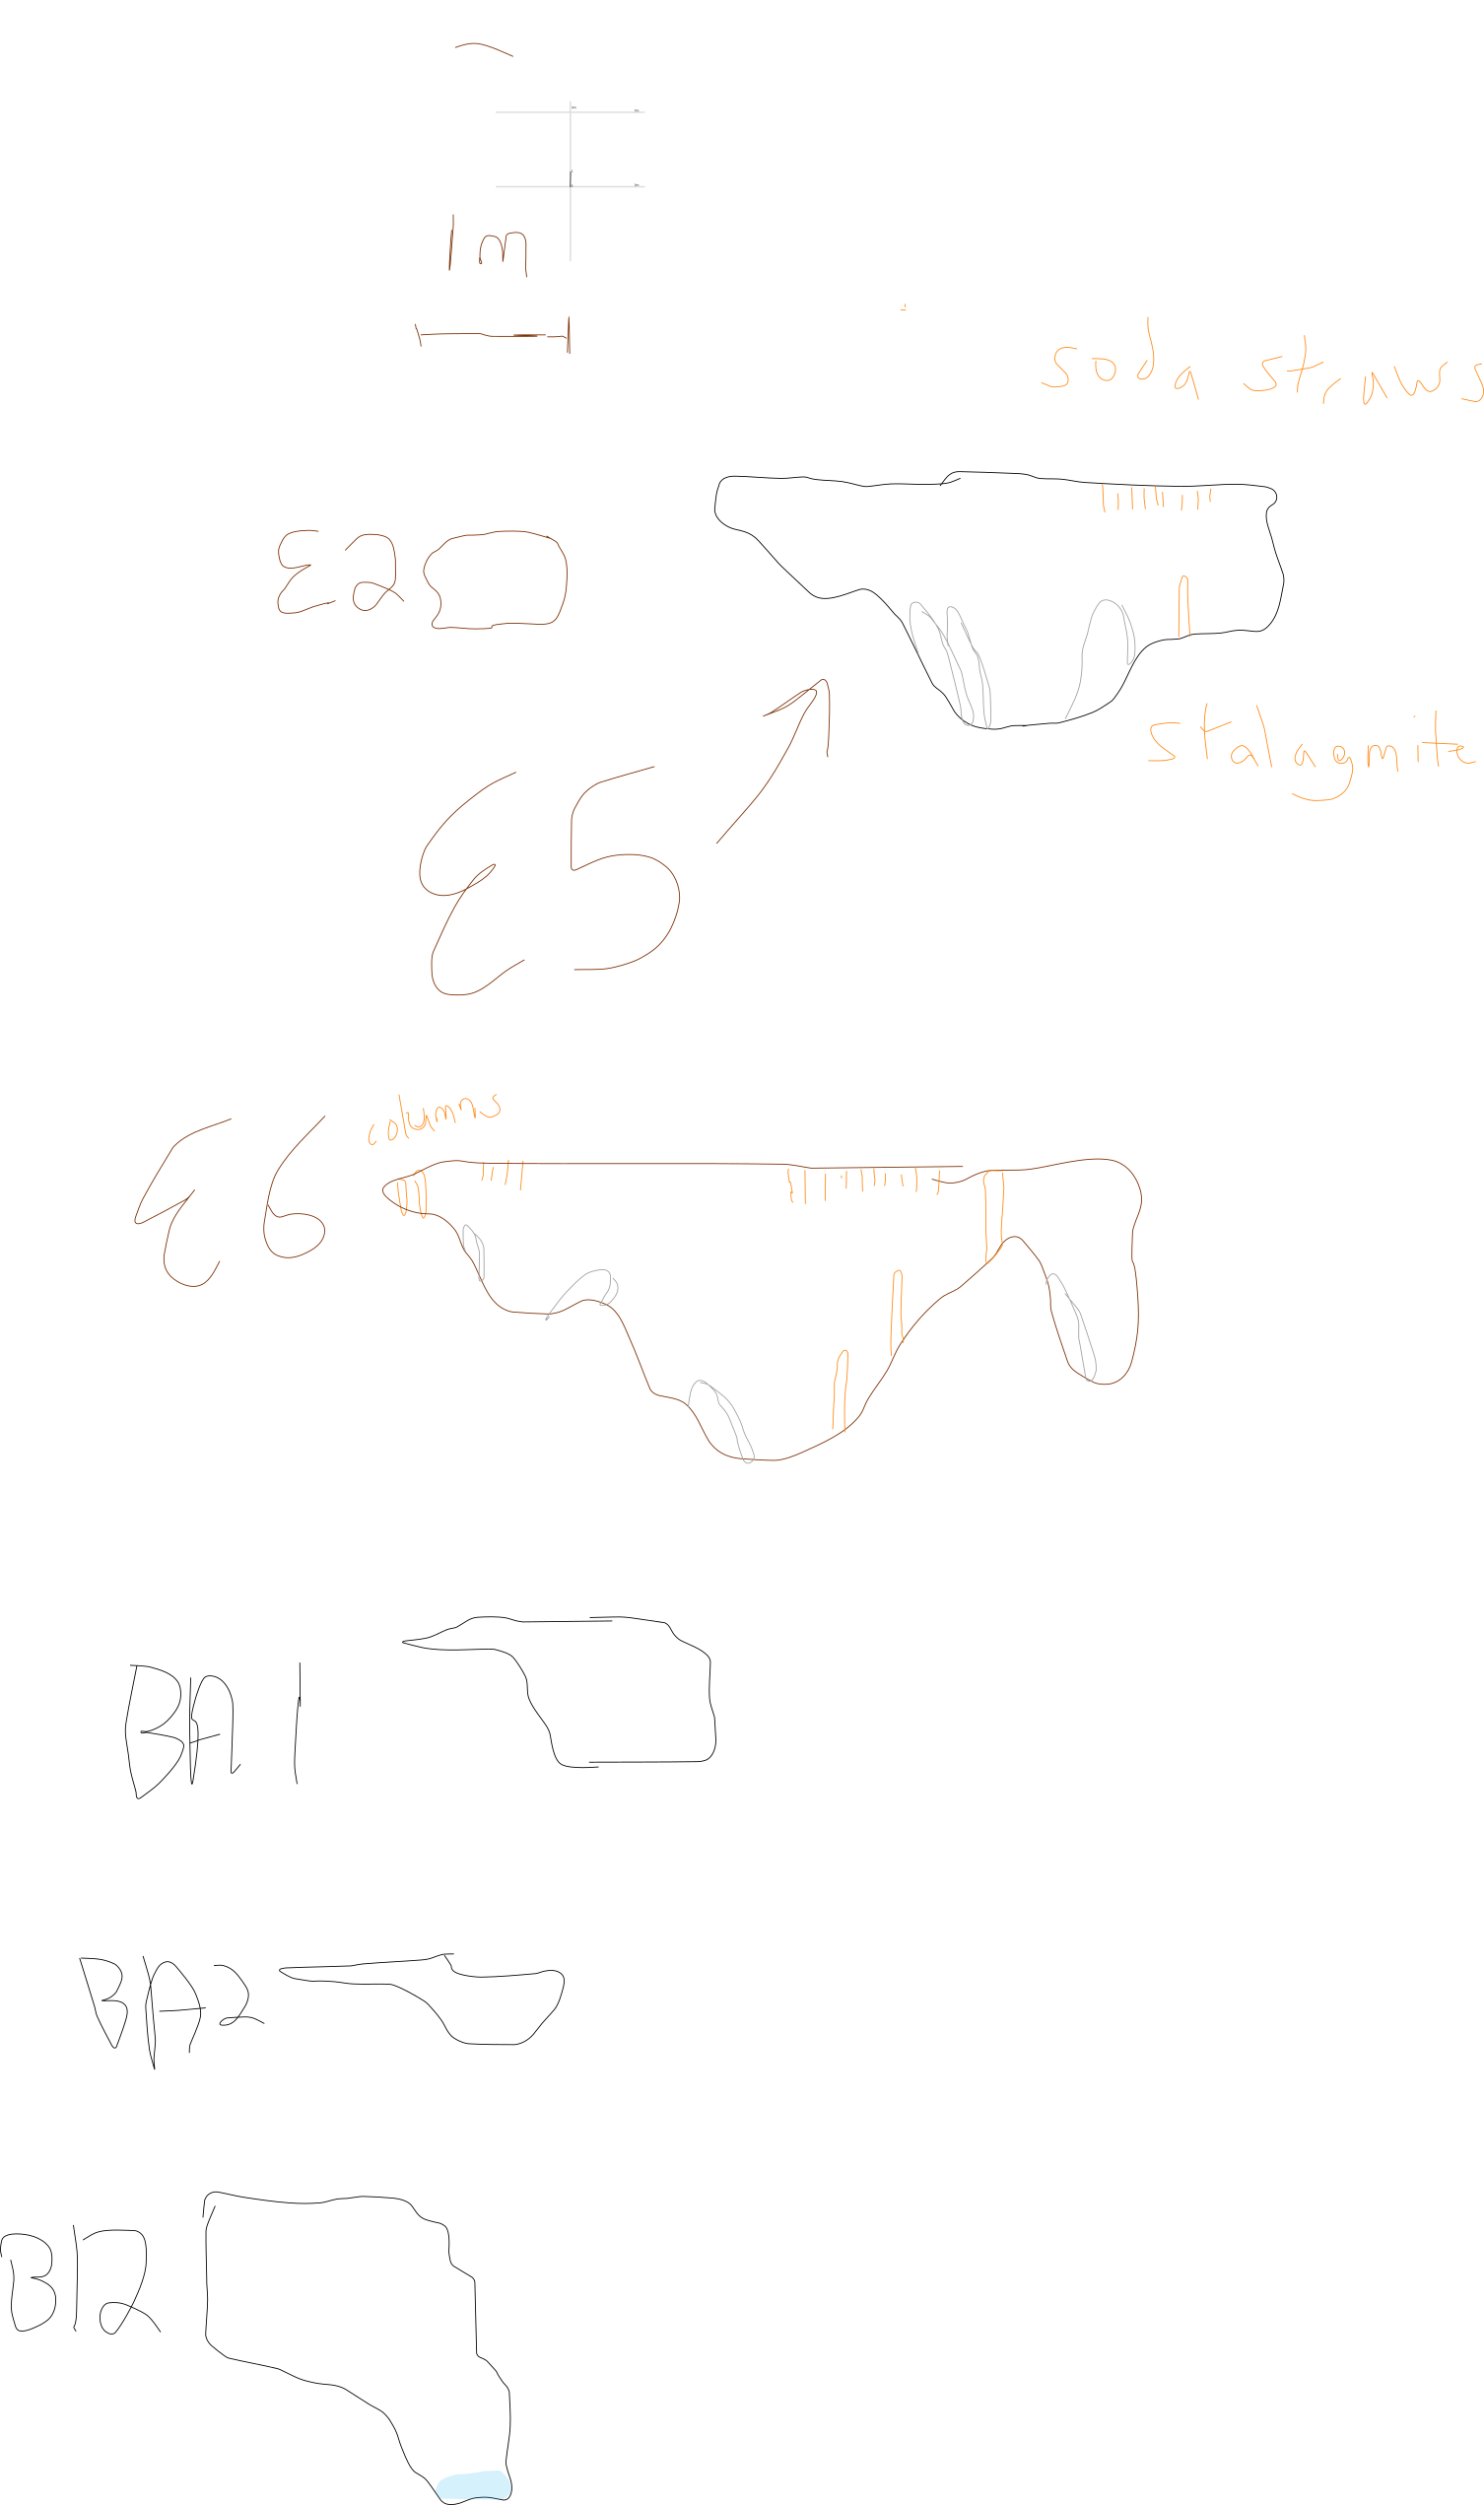 1m
soda straws
E20
stalagmite
E5
columns
E6
BA1
BA2
B12